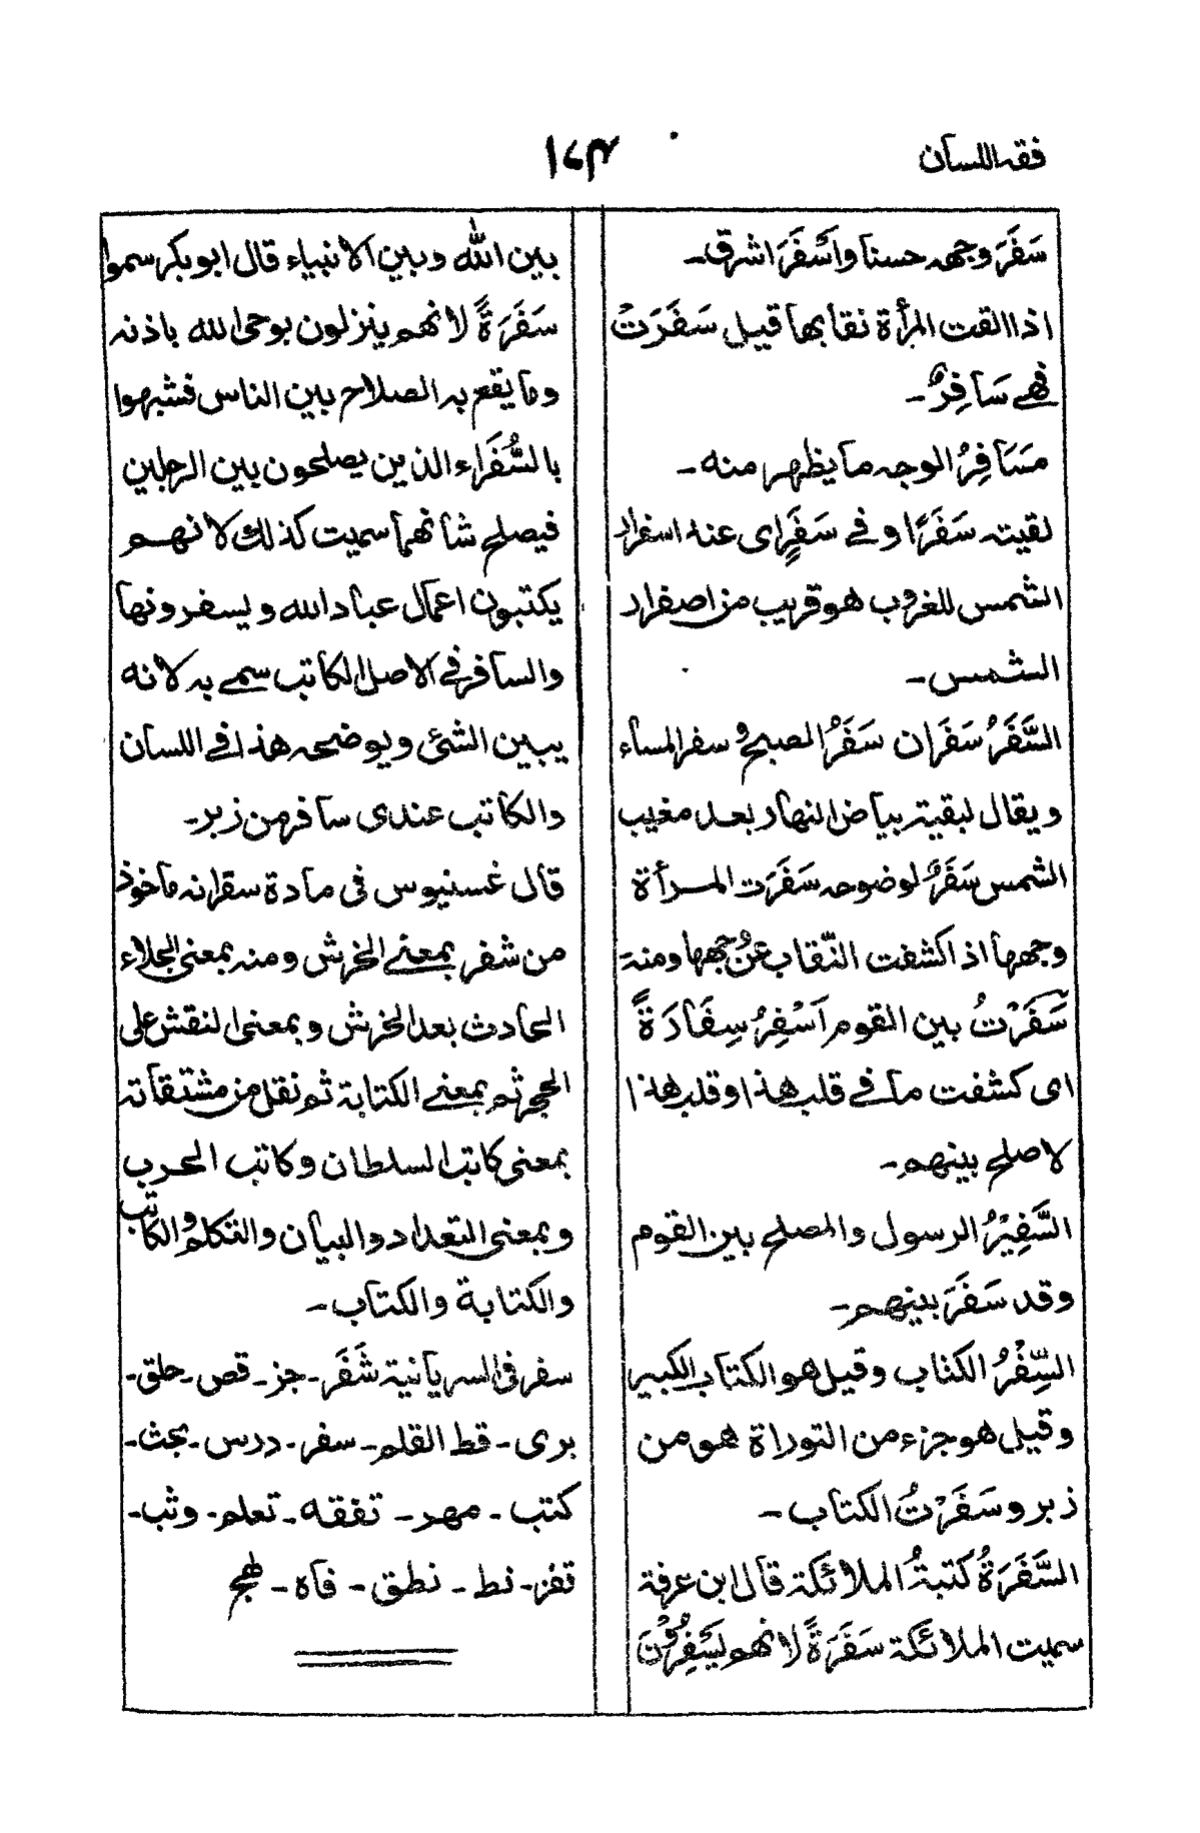 فقہ اللسان
سَفَرَ وجهه حسنا وأَسْفَرَ اشرق۔
اذا القت المرأة نقابها قيل سَفَرَتْ
فهی سَافِرٌ۔
مَسَافِرُ الوجه ما يظهر منه۔
لقيته سَفَرًا وفی سَفَرٍ ای عند اسفرار
الشمس للغروب هو قريب من اصفرار
الشمس۔
السَّفَرُ سَفَران سَفَرُ الصبح و سفر المساء
ويقال لبقية بياض النهار بعد مغيب
الشمس سَفَرٌ لوضوحه سَفَرَت المرأة
وجهها اذ اكشفت النّقاب عن وجهها ومنه
سَفَرْتُ بين القوم اَسْفِرُ سِفَارَةً
ای كشفت ما فی قلب هذا وقلب هذا
لاصلح بينهم۔
السَّفِيْرُ الرسول والمصلح بين القوم
وقد سَفَرَ بينهم۔
السِّفْرُ الكتاب وقيل هو الكتاب الكبير
وقيل هو جزء من التوراة هو من
زبر و سَفَرْتُ الكتاب۔
السَّفَرَةُ كَتبةُ الملائكة قال ابن عرفة
سميت الملائكة سَفَرَةً لانهم يَسْفِرُوْنَ
بين الله وبين الانبياء قال ابوبكر سموا
سَفَرَةً لانهم ينزلون بوحی الله باذنه
وما يقع به الصلاح بين الناس فشبهوا
بالسُّفَراء الذين يصلحون بين الرجلين
فيصلح شانهما سميت كذلك لانهم
يكتبون اعمال عباد الله ويسفرونها
والسافر فی الاصل الكاتب سمی به لانه
يبين الشیٔ ويوضحه هذا فی اللسان
والكاتب عندی سافر من زبر۔
قال غسنيوس فی مادة سفر انه ماخوذ
من شفر بمعنی الخرش ومنه بمعنی الجلاء
الحادث بعد الخرش وبمعنی النقش علی
الحجر ثم بمعنی الكتابة ثم نقل من مشتقاته
بمعنی كاتب السلطان وكاتب الحرب
وبمعنی التعداد والبيان والتكلم والكاتب
والكتابة والكتاب۔
سفر فی السريانية شَفَر۔ جز۔ قص۔ حلق۔
بری۔ قط القلم۔ سفر۔ درس۔ بحث۔
كتب۔ مهر۔ تفقه۔ تعلم۔ وثب۔
تفز۔ نط۔ نطق۔ فاه۔ لهج